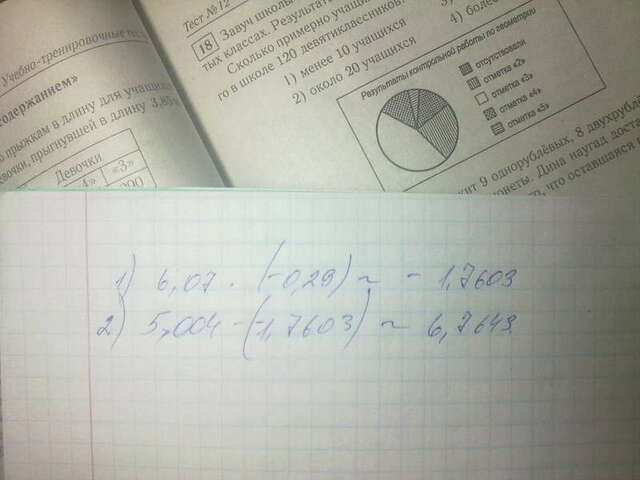 Учебно-тренировочные тес
содержанием»
о прыжкам в длину для учащих
вочки, прыгнувшей в длину 3,85
Девочки
4» «3»
Тест №12
18 Завуч школы
тых классах. Результа
Сколько примерно учащи
го в школе 120 девятиклассников.
1) менее 10 учащихся
2) около 20 учащихся
3)
4) более
Результаты контрольной работы по геометрии
отсутствовали
отметка «2»
отметка «3»
отметка «4»
отметка «5»
жит 9 однорублёвых, 8 двухрублё
монеты. Дина наугад доста
что оставшаяся
1) 6,07 · (-0,29) ~ - 1,7603
2) 5,004 - (-1,7603) ~ 6,7643